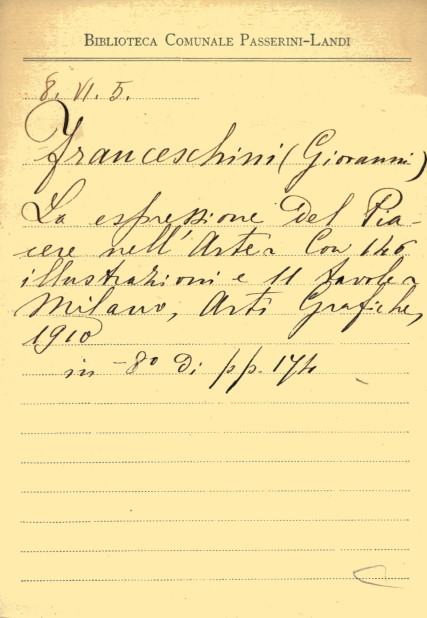 BIBLIOTECA COMUNALE PASSERINI-LANDI
8. VI. 5.
Franceschini (Giovanni)
La espressione del Pia-
cere nell'Arte. Con 146
illustrazioni e 11 tavole.
Milano, Arti Grafiche,
1910
in - 8° di pp. 174